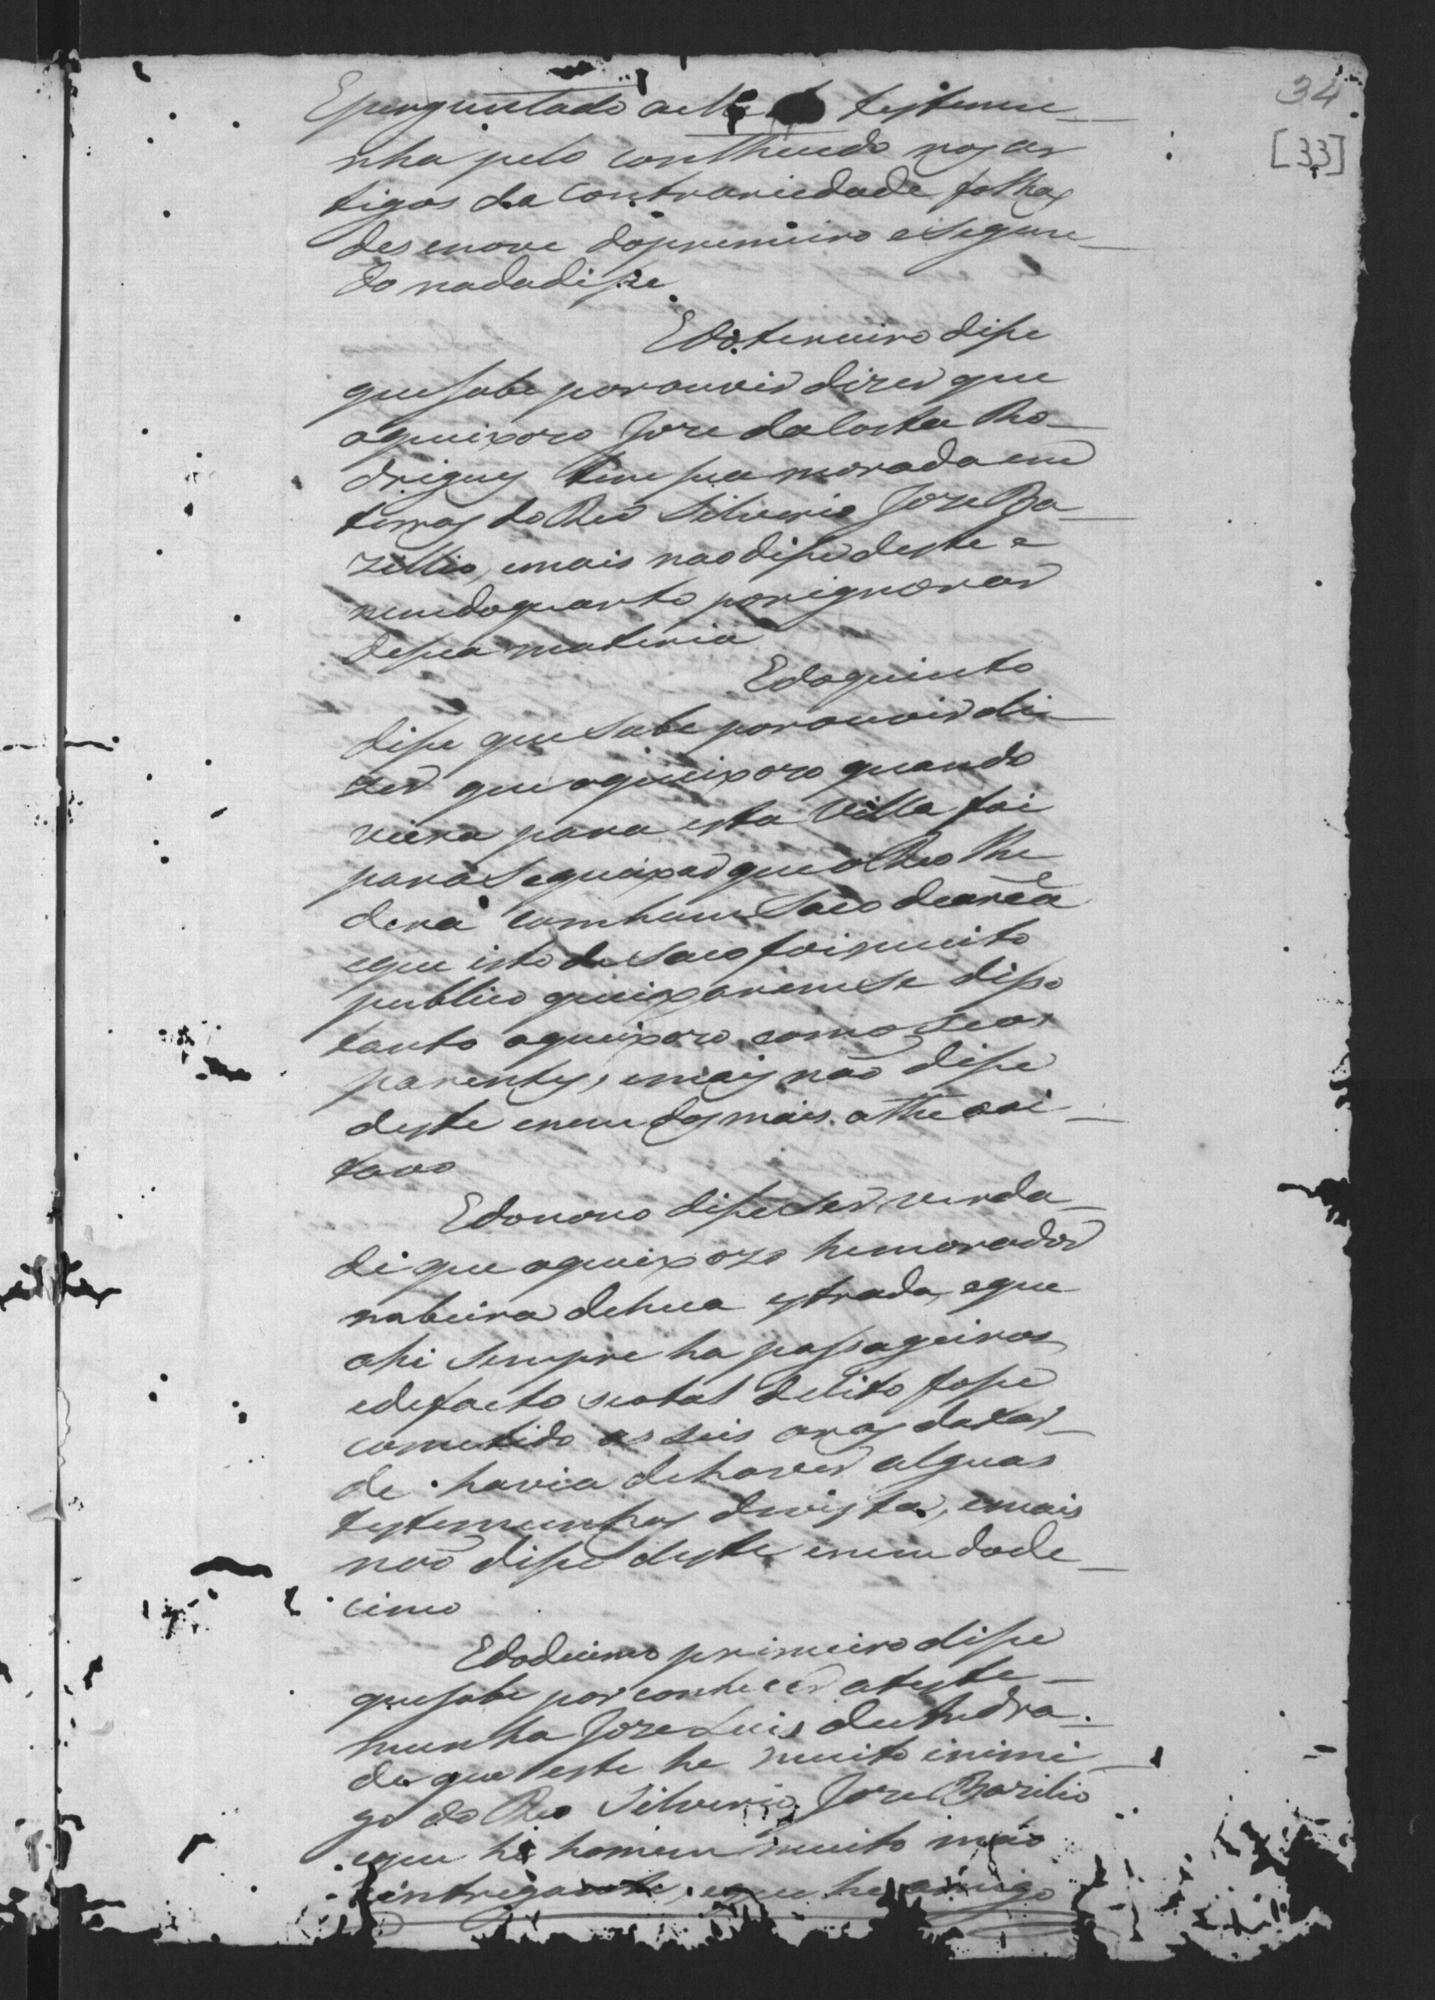 34
[33]
E perguntado a elle testemu_
nha pelo conthiudo nos ar
tigos da contrariedade folhas
desenove do premeiro e segun_
do nada disse
E do terceiro disse
que sabe por ouvir dizer que
o queixozo Joze da Costa Ro_
drigues tem sua morada em
terras do Reo Silverio Joze Ba_
zillio, e mais nao disse deste e
nem do quarto por ignorar
de sua materia
E do quinto
disse que sabe por ouvir di_
zer que o queixozo quando
viera para esta Villa foi
para se queixar que o Reo lhe
dera com hum Saco de arêa
e que isto de saco foi muito
publico queixarem se disso
tanto o queixozo como seos
parentes, e mais não disse
deste e nem dos mais athe oi_
tavo
E do nono disse ser verda_
de que o queixozo he morador
na beira de hua estrada, e que
ahi sempre ha passageiros
e de facto se o tal delito fosse
cometido as seis oras da tar_
de havia de haver alguas
testemunhas de vista, e mais
não disse deste e nem do de_
cimo
E do decimo primeiro disse
que sabe por conhecer a teste_
munha Joze Luis de Andra_
de que este he muito inimi_
go do Reo Silverio Joze Bazilio
e que he homem muito máo
intrigante, e que he amigo